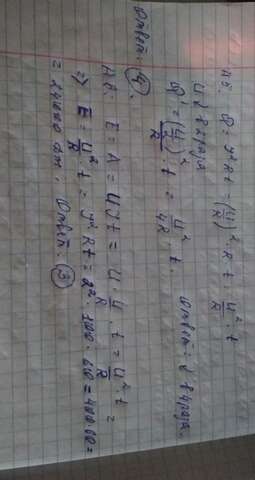 Q = I²Rt = (U/R)² · R t = U²/R · t
U ↓ в 2 раза
Q' = (U/2)²/R · t = U²/4R · t. Ответ: ↓ в 4 раза.
Ответ: 4.
А8: E = A = UIt = U · U/R · t = U²/R · t =
=> E = U²/R · t = I² · Rt = 2² · 100 · 60 = 400 · 60 =
= 24000 Дж. Ответ: 3